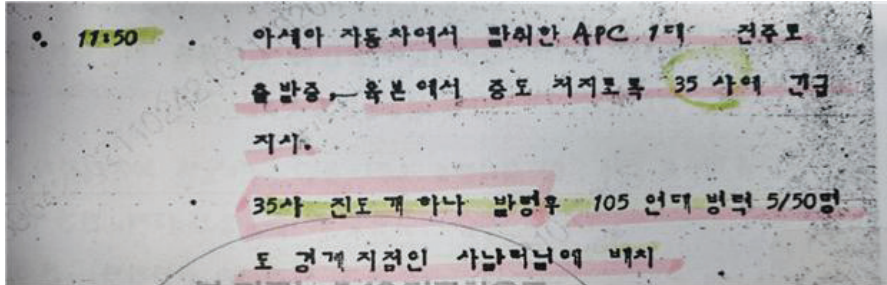 o. 11:50 . 아세아 자동차에서 탈취한 APC 1대 전주로
출발중, 육본에서 중도 저지토록 35사에 긴급
지시.
. 35사 진도개 하나 발령후 105 연대 병력 5/50명
도 경계지점인 사남터널에 배치